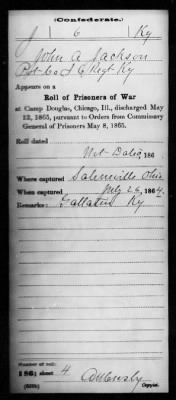 (Confederate.)
J 6 Ky
John A. Jackson
Pvt Co J 6 Regt Ky
Appears on a
Roll of Prisoners of War
at Camp Douglas, Chicago, Ill., discharged May
12, 1865, pursuant to Orders from Commissary
General of Prisoners May 8, 1865.
Roll dated
Not Dated, 186 .
Where captured Salineville Ohio
When captured July 26, 1864.
Remarks: Gallatin Ky
Number of roll:
186; sheet 4
Copyist.